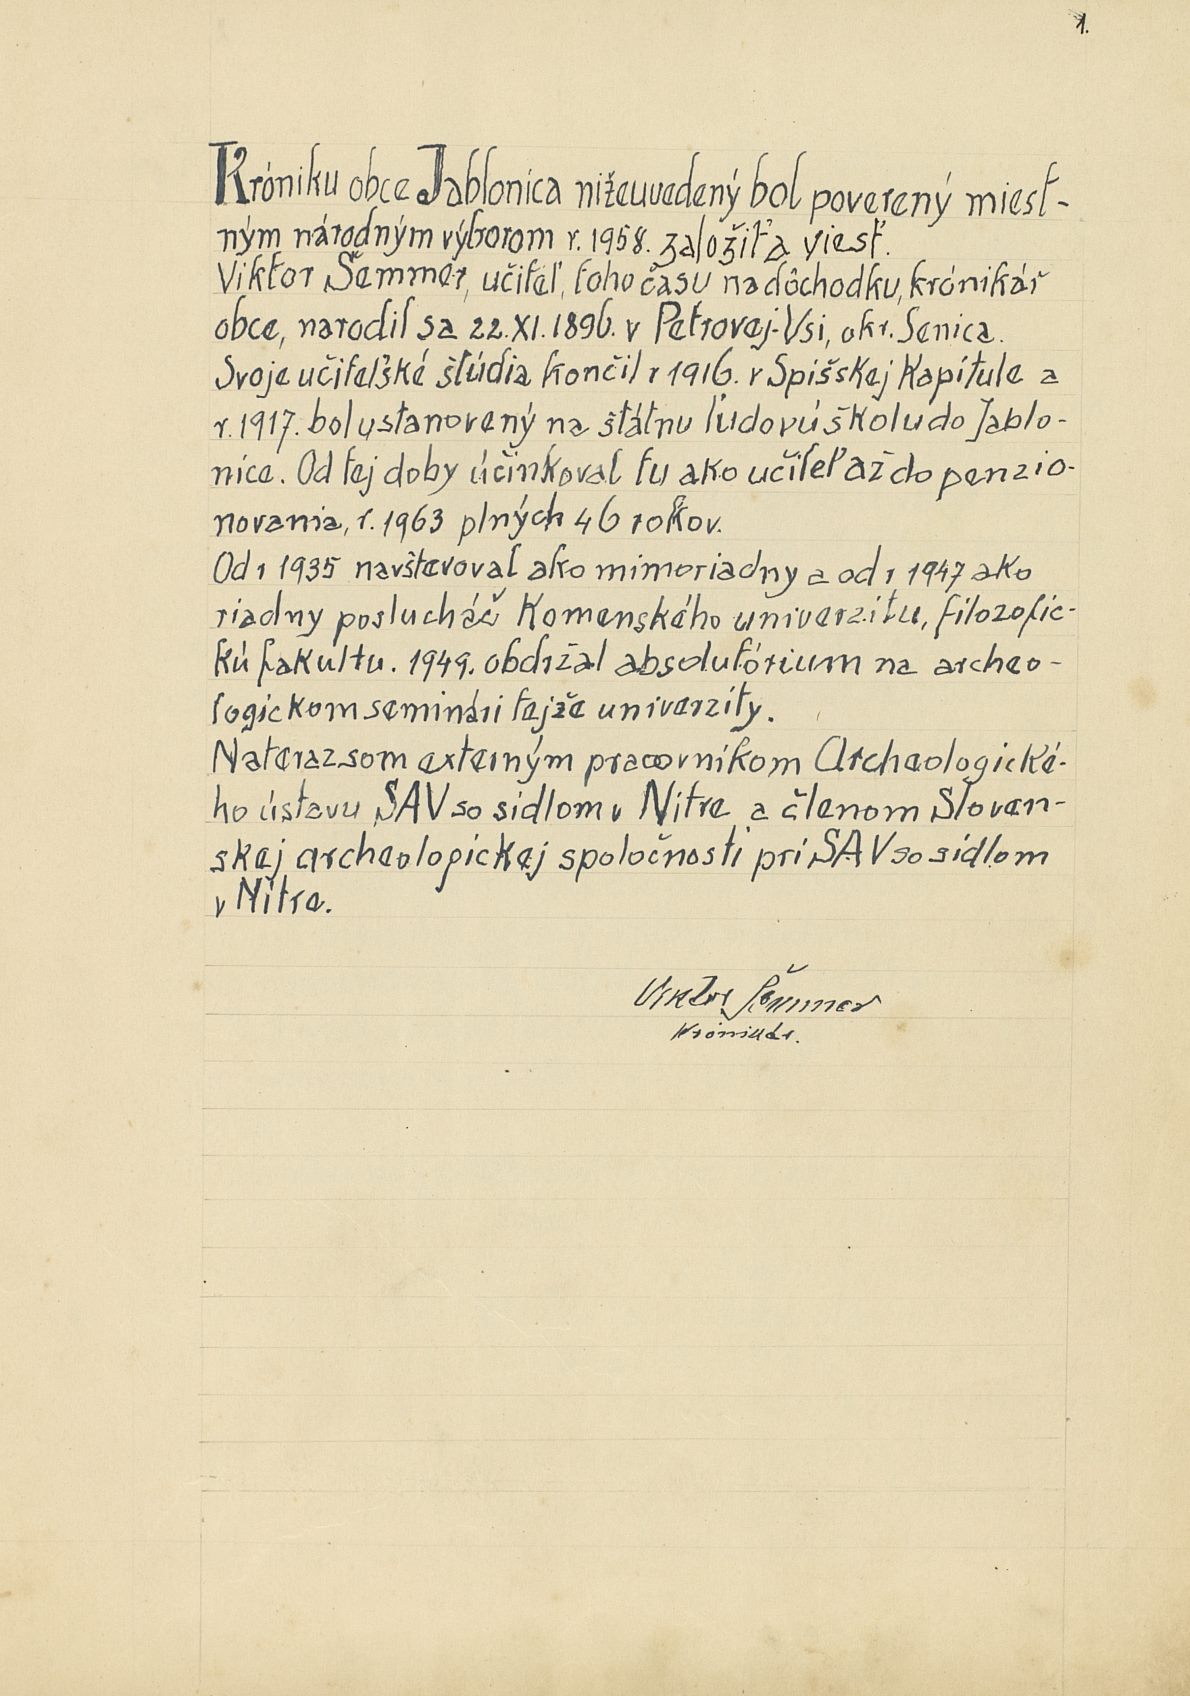 1.
Króniku obce Jablonica nižeuvedený bol poverený miest-
ným národným výborom r. 1958. založiť a viesť.
Viktor Šemmer, učiteľ, toho času na dôchodku, kronikár
obce, narodil sa 22. XI. 1896. v Petrovej-Vsi, okr. Senica.
Svoje učiteľské štúdia končil r 1916. v Spišskej Kapitule a
r. 1917. bol ustanovený na štátnu ľudovú školu do Jablo-
nice. Od tej doby účinkoval tu ako učiteľ až do penzio-
novania, r. 1963 plných 46 rokov.
Od r 1935 navštevoval ako mimoriadny a od r 1947 ako
riadny poslucháč Komenského univerzitu, filozofic-
kú fakultu. 1949. obdržal absolutórium na archeo-
logickom seminári tejže univerzity.
Nateraz som externým pracovníkom Archeologické-
ho ústavu SAV so sídlom v Nitre a členom Sloven-
skej archeologickej spoločnosti pri SAV so sídlom
v Nitre.
Viktor Šemmer
kronikár.